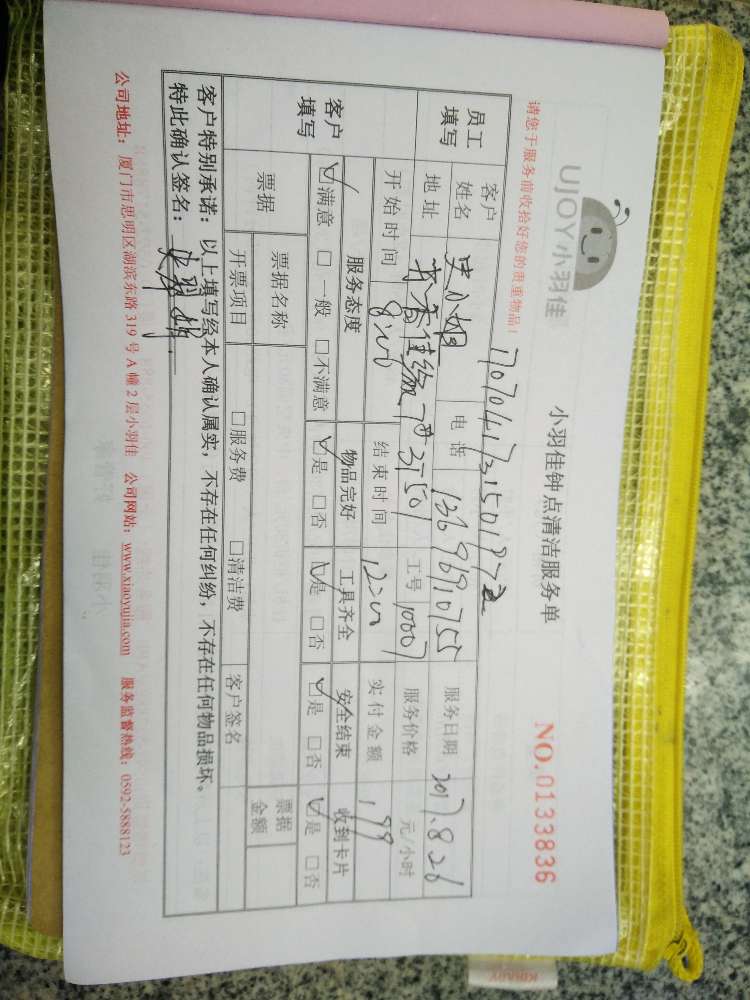 UJOY小羽佳
小羽佳钟点清洁服务单
NO.0133836
请您于服务前收拾好您的贵重物品！
员工填写
客户姓名
史小姐
电话
13696910755
服务日期
2017.8.26
地址
3750
工号
10007
服务价格
元/小时
开始时间
8:00
结束时间
12:00
实付金额
199
客户填写
服务态度
物品完好
工具齐全
安全结束
收到卡片
☑满意 □一般 □不满意
☑是 □否
☑是 □否
☑是 □否
☑是 □否
票据
票据名称
票据金额
开票项目
□服务费 □清洁费
客户签名
客户特别承诺：以上填写经本人确认属实，不存在任何纠纷，不存在任何物品损坏。
特此确认签名：
公司地址：厦门市思明区湖滨东路 319 号 A 幢 2 层小羽佳 公司网站：www.xiaoyujia.com 服务监督热线：0592-5888123